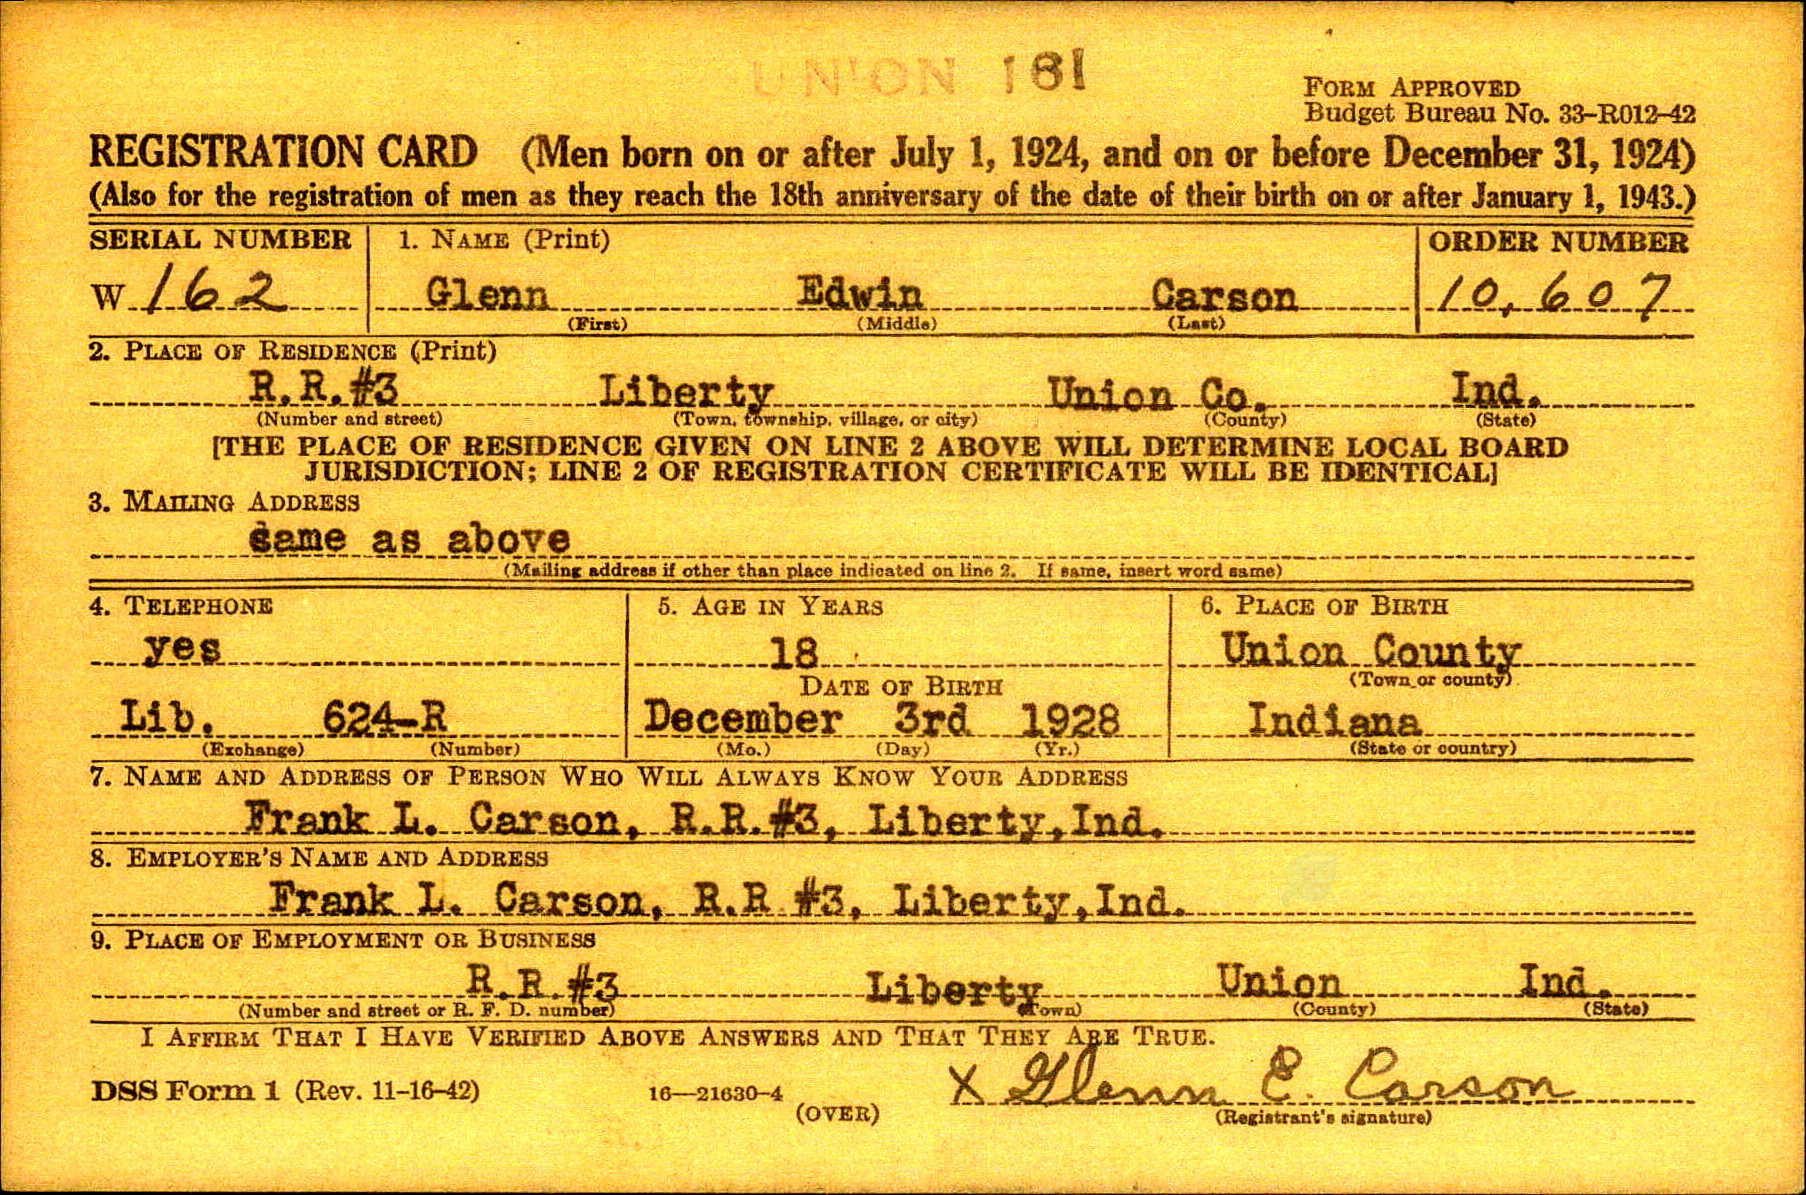 UNION 181
FORM APPROVED
Budget Bureau No. 33-R012-42
REGISTRATION CARD (Men born on or after July 1, 1924, and on or before December 31, 1924)
(Also for the registration of men as they reach the 18th anniversary of the date of their birth on or after January 1, 1943.)
SERIAL NUMBER 1. NAME (Print) ORDER NUMBER
W 162 Glenn Edwin Carson 10,607
(First) (Middle) (Last)
2. PLACE OF RESIDENCE (Print)
R.R.#3 Liberty Union Co. Ind.
(Number and street) (Town, township, village, or city) (County) (State)
[THE PLACE OF RESIDENCE GIVEN ON LINE 2 ABOVE WILL DETERMINE LOCAL BOARD
JURISDICTION; LINE 2 OF REGISTRATION CERTIFICATE WILL BE IDENTICAL]
3. MAILING ADDRESS
same as above
(Mailing address if other than place indicated on line 2. If same, insert word same)
4. TELEPHONE 5. AGE IN YEARS 6. PLACE OF BIRTH
yes 18 Union County
DATE OF BIRTH (Town or county)
Lib. 624-R December 3rd 1928 Indiana
(Exchange) (Number) (Mo.) (Day) (Yr.) (State or country)
7. NAME AND ADDRESS OF PERSON WHO WILL ALWAYS KNOW YOUR ADDRESS
Frank L. Carson, R.R.#3, Liberty,Ind.
8. EMPLOYER'S NAME AND ADDRESS
Frank L. Carson, R.R #3, Liberty,Ind.
9. PLACE OF EMPLOYMENT OR BUSINESS
R.R.#3 Liberty Union Ind.
(Number and street or R. F. D. number) (Town) (County) (State)
I AFFIRM THAT I HAVE VERIFIED ABOVE ANSWERS AND THAT THEY ARE TRUE.
DSS Form 1 (Rev. 11-16-42) 16—21630-4 X Glenn E. Carson
(OVER) (Registrant's signature)